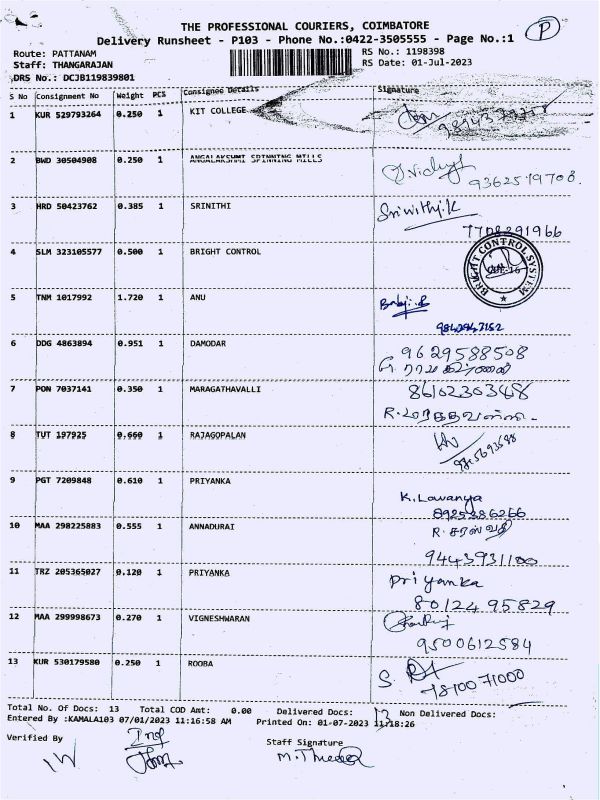 THE PROFESSIONAL COURIERS, COIMBATORE
Delivery Runsheet - P103 - Phone No.:0422-3505555 - Page No.:1
P
Route: PATTANAM
RS No.: 1198398
Staff: THANGARAJAN
RS Date: 01-Jul-2023
DRS No.: DCJB119839801
S No Consignment No Weight PCS Consignee Details Signature
1 KUR 529793264 0.250 1 KIT COLLEGE
2 BWD 30504908 0.250 1 ANGALAKSHMI SPINNING MILLS
9362519708.
3 HRD 50423762 0.385 1 SRINITHI Srinithi.K
7708291966
4 SLM 323105577 0.500 1 BRIGHT CONTROL
BRIGHT CONTROL SYSTEM
5 TNM 1017992 1.720 1 ANU
6 DDG 4863894 0.951 1 DAMODAR 9629588508
7 PON 7037141 0.350 1 MARAGATHAVALLI 8610230348
R. மரகதவள்ளி
8 TUT 197925 0.660 1 RAJAGOPALAN
9 PGT 7209848 0.610 1 PRIYANKA K. Lawanya
8925386266
10 MAA 298225883 0.555 1 ANNADURAI R. சரஸ்வதி
9443931100
11 TRZ 205365027 0.120 1 PRIYANKA Priyanka
8012495829
12 MAA 299998673 0.270 1 VIGNESHWARAN
9500612584
13 KUR 530179580 0.250 1 ROOBA S.
7810071000
Total No. Of Docs: 13 Total COD Amt: 0.00 Delivered Docs: 13 Non Delivered Docs:
Entered By :KAMALA103 07/01/2023 11:16:58 AM Printed On: 01-07-2023 11:18:26
Verified By
Staff Signature